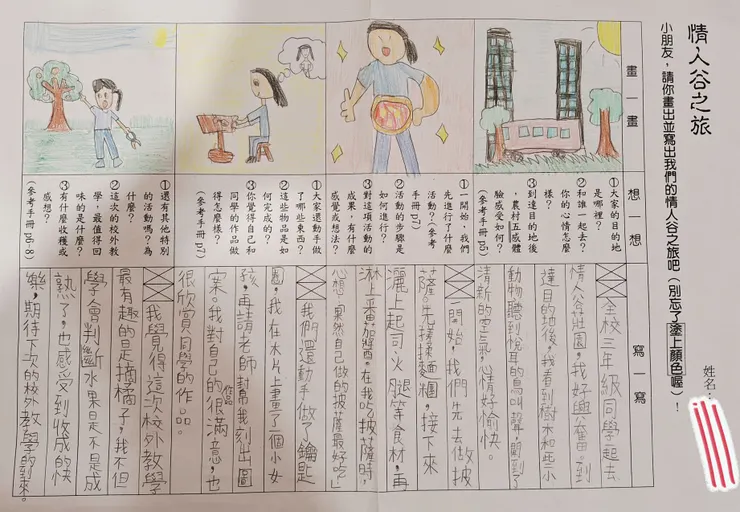 情人谷之旅
小朋友，請你畫出並寫出我們的情人谷之旅吧（別忘了塗上顏色喔）！
姓名：
畫一畫
想一想
寫一寫
①大家的目的地
是哪裡？
②和誰一起去？
你的心情怎麼
樣？
③到達目的地後
，農村五感體
驗感受如何？
（參考手冊p5）
全校三年級同學一起去
情人谷莊園，我好興奮。到
達目的地後，我看到樹木和些小
動物聽到悅耳的鳥叫聲，聞到了
清新的空氣，心情好愉快。
①一開始，我們
先進行了什麼
活動？（參考
手冊p7）
②活動的步驟是
如何進行？
③對這項活動的
成果，有什麼
感覺或想法？
一開始，我們先去做披
薩。先揉揉麵糰，接下來
灑上起司、火腿等食材，再
淋上番茄醬。在我吃披薩時，
心想：果然自己做的披薩最好吃」
①大家還動手做
了哪些東西？
②這些物品是如
何完成的？
③你覺得自己和
同學的作品做
得怎麼樣？
（參考手冊p7）
我們還動手做了鑰匙
圈，我在木片上畫了個小女
孩，再請老師幫我刻出圖
案。我對自己的作品很滿意，也
很欣賞同學的作品。
①還有其他特別
的活動嗎？為
什麼？
②這次的校外教
學，最值得回
味的是什麼？
③有什麼收獲或
感想？
（參考手冊p6-8）
我覺得這次校外教學
最有趣的是摘橘子，我不但
學會判斷水果是不是成
熟了，也感受到收成的快
樂，期待下次的校外教學的到來。